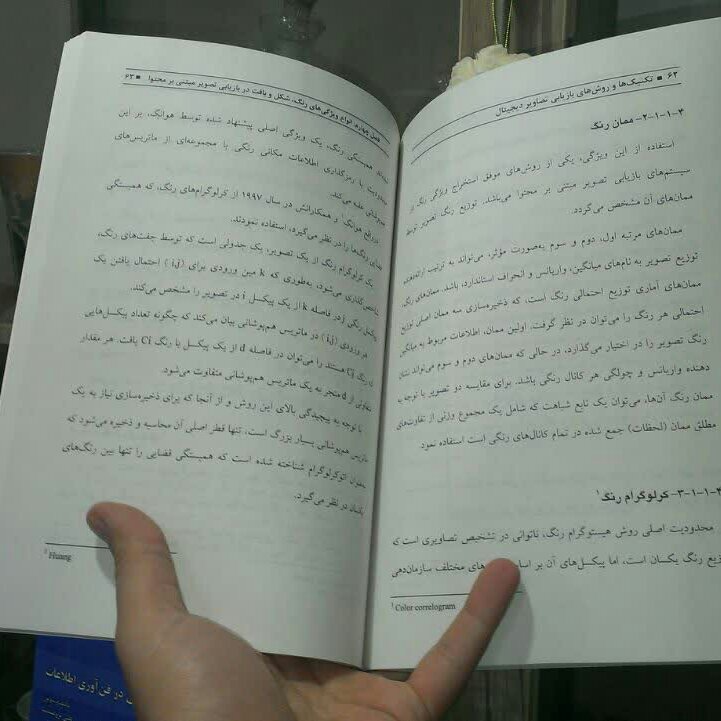 ۶۲ ■ تکنیک‌ها و روش‌های بازیابی تصاویر دیجیتال
۴-۱-۱-۲- ممان رنگ
استفاده از این ویژگی، یکی از روش‌های موفق استخراج ویژگی رنگ در
سیستم‌های بازیابی تصویر مبتنی بر محتوا می‌باشد. توزیع رنگ تصویر توسط
ممان‌های آن مشخص می‌گردد.
ممان‌های مرتبه اول، دوم و سوم به‌صورت مؤثر، می‌تواند به ترتیب ارائه‌دهنده
توزیع تصویر به نام‌های میانگین، واریانس و انحراف استاندارد، باشد. ممان‌های رنگ،
ممان‌های آماری توزیع احتمالی رنگ است، که ذخیره‌سازی سه ممان اصلی توزیع
احتمالی هر رنگ را می‌توان در نظر گرفت. اولین ممان، اطلاعات مربوط به میانگین
رنگ تصویر را در اختیار می‌گذارد، در حالی که ممان‌های دوم و سوم می‌تواند نشان
دهنده واریانس و چولگی هر کانال رنگی باشد. برای مقایسه دو تصویر با توجه به
ممان رنگ آن‌ها، می‌توان یک تابع شباهت که شامل یک مجموع وزنی از تفاوت‌های
مطلق ممان (لحظات) جمع شده در تمام کانال‌های رنگی است استفاده نمود.
۴-۱-۱-۳- کرلوگرام رنگ¹
محدودیت اصلی روش هیستوگرام رنگ، ناتوانی در تشخیص تصاویری است که
توزیع رنگ یکسان است، اما پیکسل‌های آن بر اساس های مختلف سازمان‌دهی
¹ Color correlogram
فصل چهارم، انواع ویژگی‌های رنگ، شکل و بافت در بازیابی تصویر مبتنی بر محتوا ■ ۶۳
همبستگی رنگ، یک ویژگی اصلی پیشنهاد شده توسط هوانگ، بر این
محدودیت با رمزگذاری اطلاعات مکانی رنگی با مجموعه‌ای از ماتریس‌های
هم‌وشانی غلبه می‌کند.
در واقع هوانگ² و همکارانش در سال ۱۹۹۷ از کرلوگرام‌های رنگ، که همبستگی
فضایی رنگ‌ها را در نظر می‌گیرد، استفاده نمودند.
یک کرلوگرام رنگ از یک تصویر، یک جدولی است که توسط جفت‌های رنگ،
شاخص گذاری می‌شود، به‌طوری که k مین ورودی برای (i,j) احتمال یافتن یک
پیکسل رنگی j در فاصله k از یک پیکسل i در تصویر را مشخص می‌کند.
هر ورودی (i,j) در ماتریس هم‌پوشانی بیان می‌کند که چگونه تعداد پیکسل‌هایی
که رنگ Cj هستند را می‌توان در فاصله d از یک پیکسل با رنگ Ci یافت. هر مقدار
متفاوتی از d منجر به یک ماتریس هم‌پوشانی متفاوت می‌شود.
با توجه به پیچیدگی بالای این روش و از آنجا که برای ذخیره‌سازی نیاز به یک
ماتریس هم‌پوشانی بسیار بزرگ است، تنها قطر اصلی آن محاسبه و ذخیره می‌شود که
به‌عنوان اتوکرلوگرام شناخته شده است که همبستگی فضایی را تنها بین رنگ‌های
یکسان در نظر می‌گیرد.
² Huang
در فن‌آوری اطلاعات